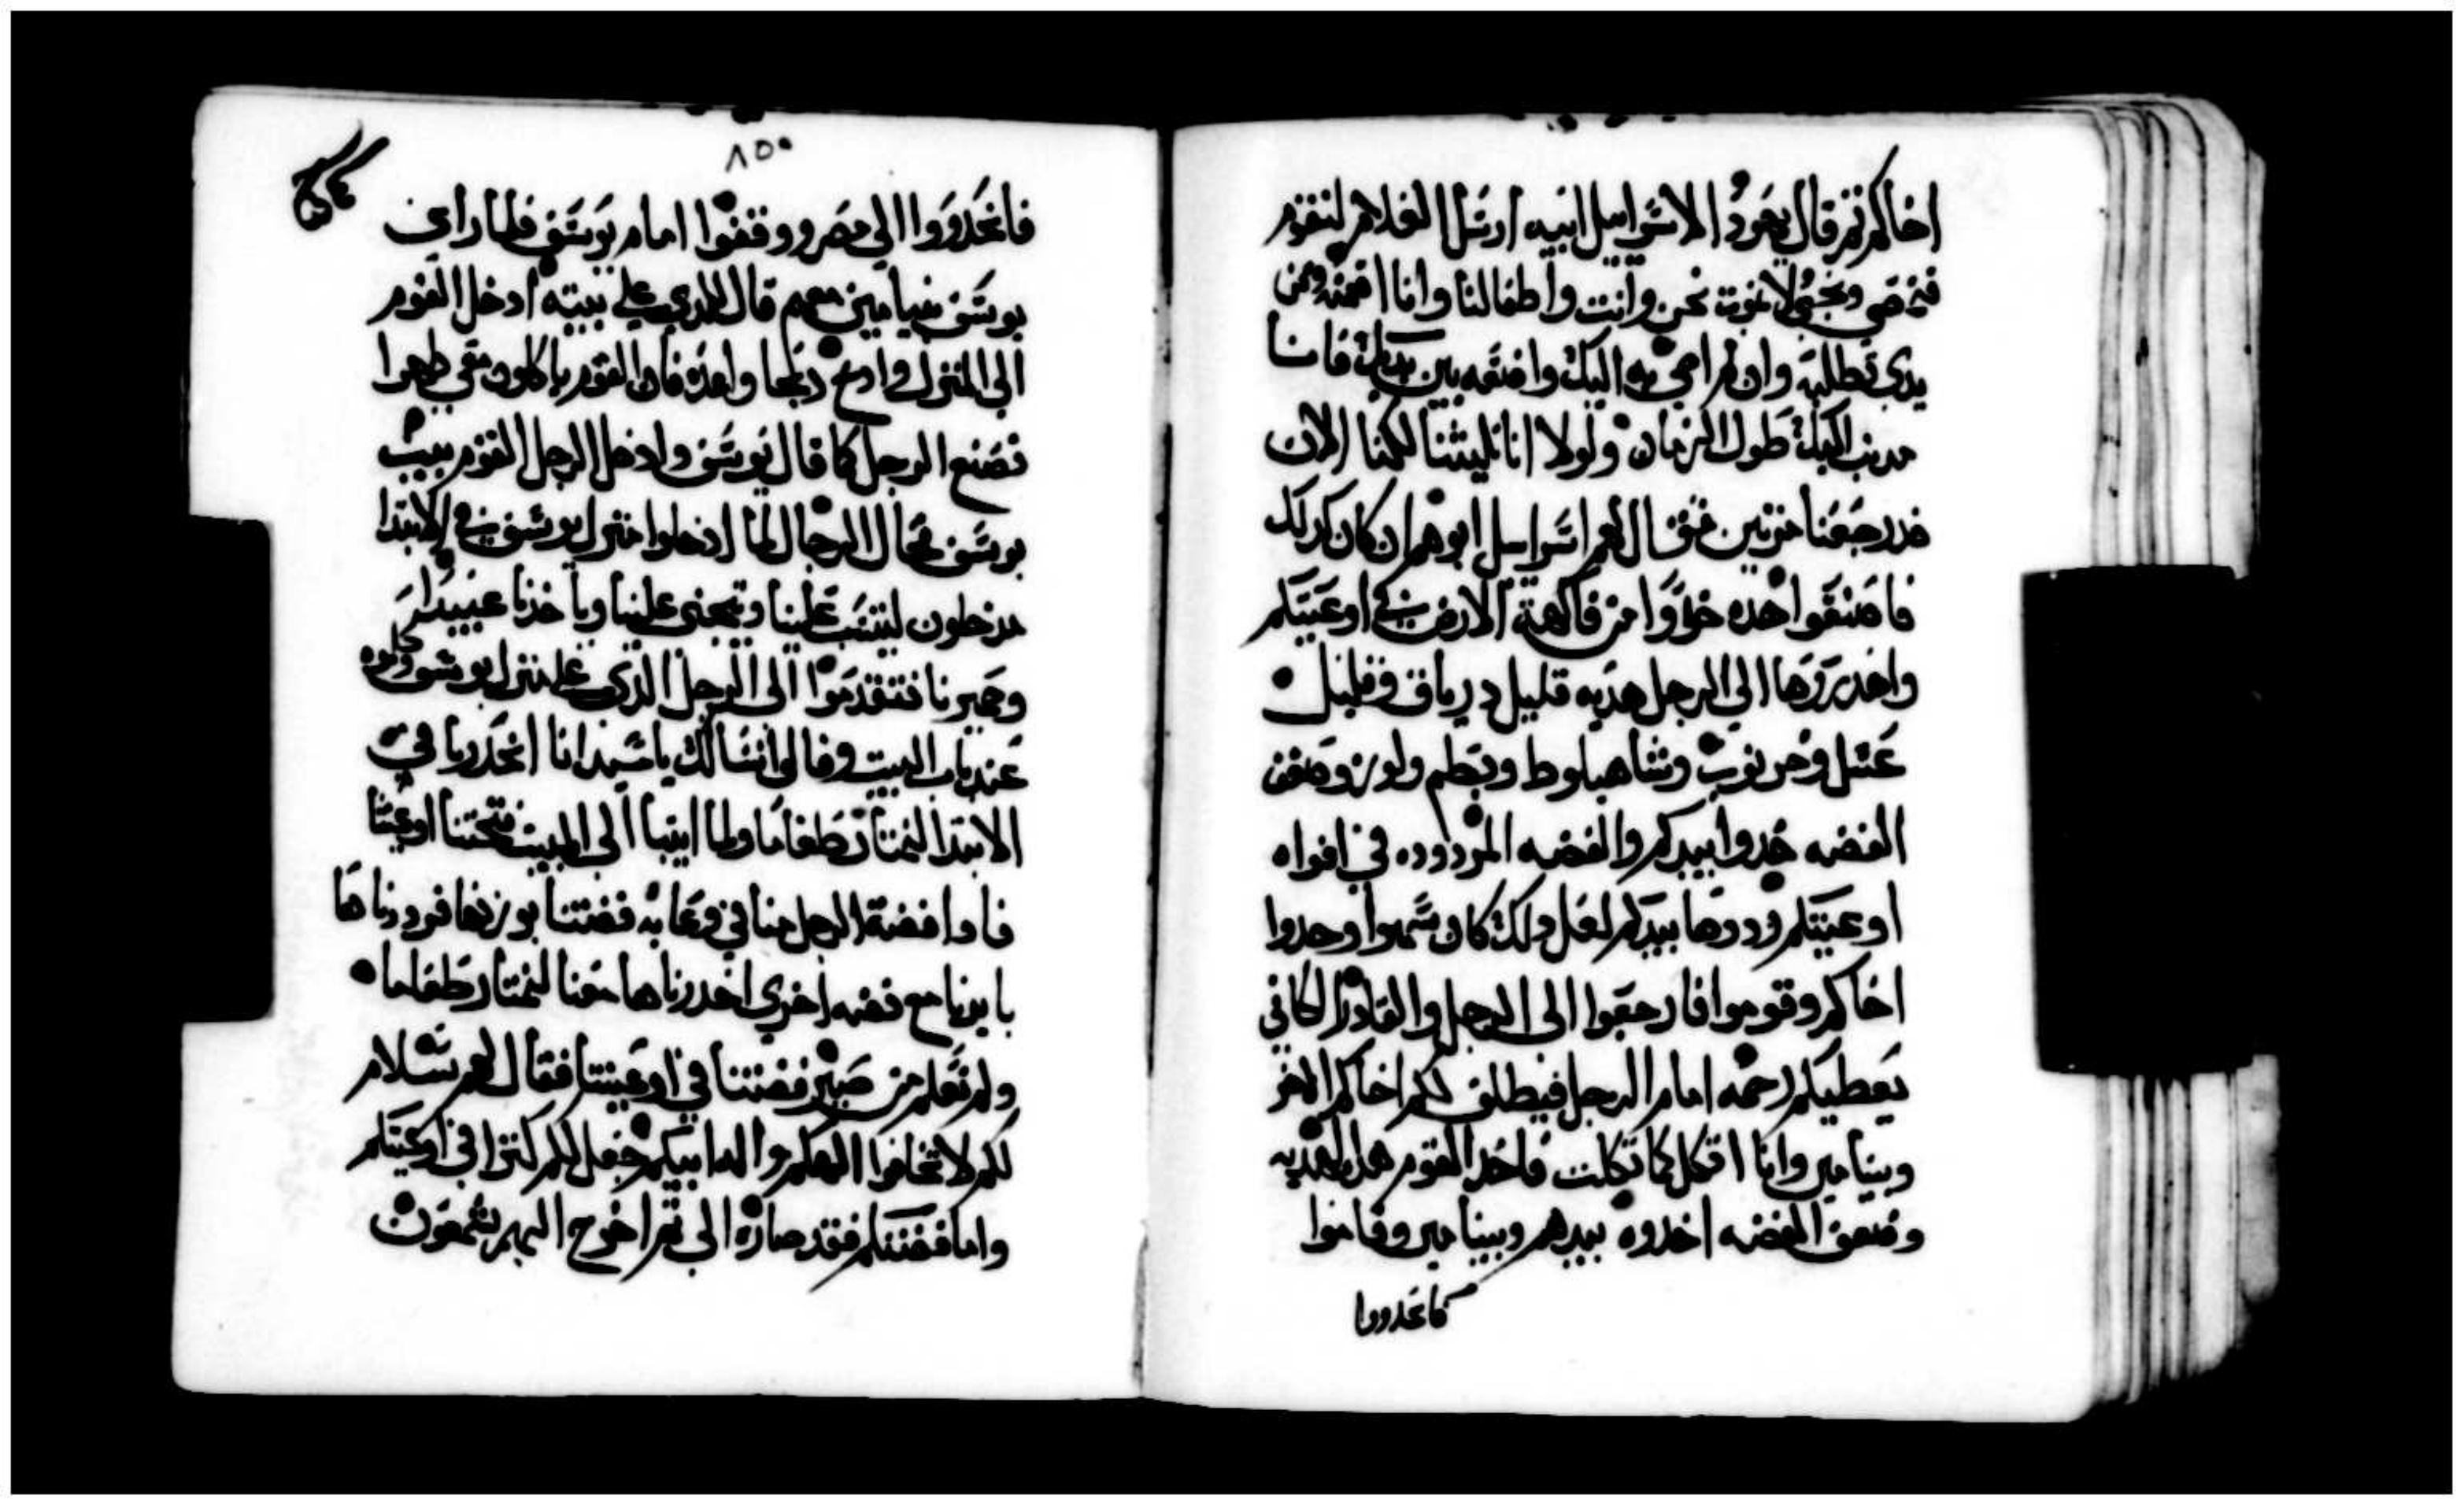 اخاكم ثم قال يهودا لاسراييل ابيه ارسل الغلام لنقوم
فنمضي ونحيي لا نموت نحن وانت واطفالنا وانا اضمنه ومن
يدي تطلبه وان لم اجي به اليك واضعه بين يديك فانا
مدنب اليك طول الزمان ولولا اننا لبثنا لكنا الان
قد رجعنا مرتين فقال لهم اسراييل ابوهم ان كان كدلك
فاصنعوا هده خدوا من فاكهة الارض في اوعيتكم
واحدروها الي الرجل هديه قليل درياق وقليل
عسل وخرنوب وشاهبلوط وبطم ولوز وضعف
الفضه خدوا بيدكم والفضه المردوده في افواه
اوعيتكم ردوها بيدكم لعل دلك كان سهوا وخدوا
اخاكم وقوموا فارجعوا الى الرجل والقادر الكافي
يعطيكم رحمه امام الرجل فيطلق لكم اخاكم الاخر
وبنيامين وانا اتكل كما تكلت فاخد القوم هده الهديه
وضعف الفضه اخدوه بيدهم وبنيامين وقاموا
فانحدروا
٨٥
فانحدروا الي مصر ووقفوا امام يوسف فلما راي
يوسف بنيامين معهم قال للدي علي بيته ادخل القوم
الي المنزل وادبح دبحا واعده فان القوم ياكلون معي ظهرا
فصنع الرجل كما قال يوسف وادخل الرجل القوم بيت
يوسف فقال الرجال لما ادخلوا منزل يوسف في الابتدا
مدخلون ليتسبب علينا ويتجنى علينا وياخدنا عبيدا
وحميرنا فتقدموا الى الرجل الدي على منزل يوسف وكلموه
عند باب البيت وقالوا نسالك يا سيد انا انحدرنا في
الابتدا لنمتار طعاما ولما اتينا الي المبيت فتحنا اوعيتنا
فادا فضة الرجل منا في وعايه فضتنا بوزنها فرددناها
بايدنا مع فضه اخري احدرناها معنا لنمتار طعاما
ولم نعلم من صير فضتنا في اوعيتنا فقال لهم سلام
لكم لا تخافوا الهكم واله ابيكم جعل لكم كنزا في اوعيتكم
واما فضتكم فقد صارة الي ثم اخرج اليهم شمعون